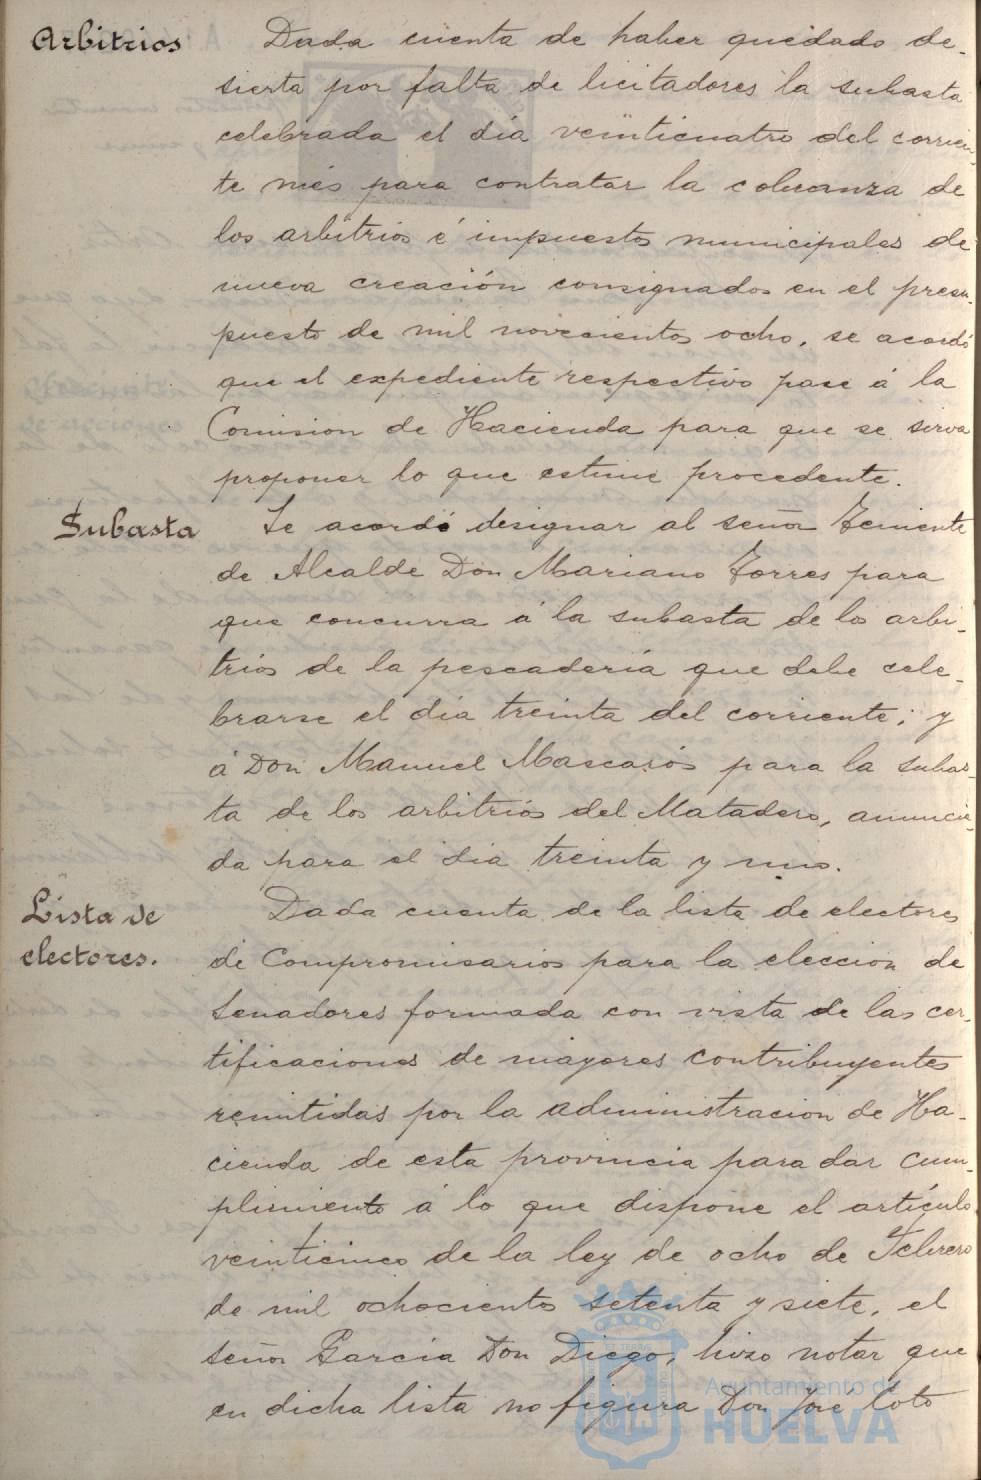 Arbitrios
Dada cuenta de haber quedado de-
sierta por falta de licitadores la subasta
celebrada el día veinticuatro del corrien-
te mes para contratar la cobranza de
los arbitrios é impuestos municipales de
nueva creación consignados en el presu-
puesto de mil novecientos ocho, se acordó
que el expediente respectivo pase á la
Comision de Hacienda para que se sirva
proponer lo que estime procedente.
Subasta
Se acordó designar al señor Teniente
de Alcalde Don Mariano Torres para
que concurra á la subasta de los arbi-
trios de la pescadería que debe cele-
brarse el día treinta del corriente; y
á Don Manuel Mascarós para la subas-
ta de los arbitrios del Matadero, anuncia-
da para el dia treinta y uno.
Lista de
electores.
Dada cuenta de la lista de electores
de Compromisarios para la eleccion de
Senadores formada con vista de las cer-
tificaciones de mayores contribuyentes
remitidas por la administracion de Ha-
cienda de esta provincia para dar cum-
plimiento á lo que dispone el artículo
veinticinco de la ley de ocho de Febrero
de mil ochocientos setenta y siete, el
señor Garcia Don Diego, hizo notar que
en dicha lista no figura Don José Coto
Ayuntamiento de
HUELVA